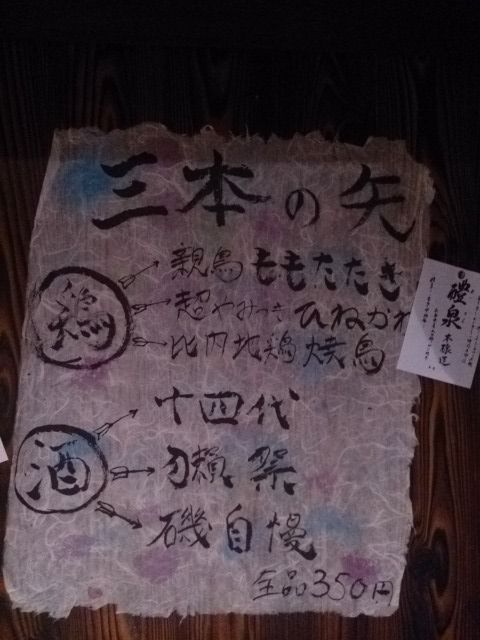 三本の矢
鶏
親鳥ももたたき
超やみつきひねかわ
比内地鶏焼鳥
酒
十四代
獺祭
磯自慢
全品350円
醴泉
本醸造